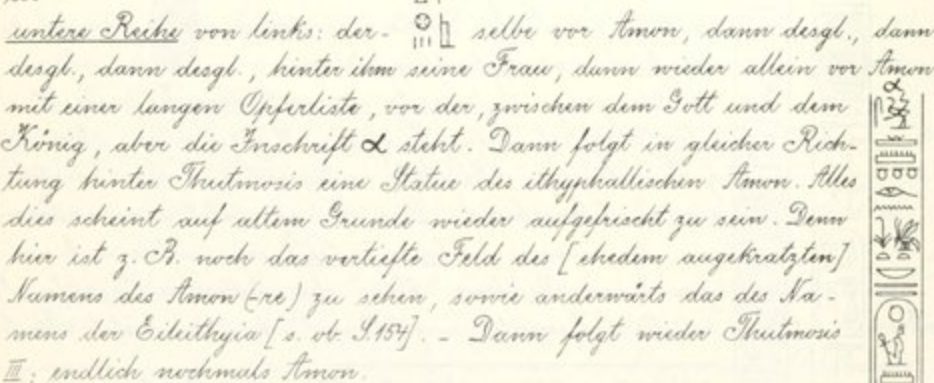 untere Reihe von links: der- selbe vor Amon, dann desgl., dann
desgl., dann desgl., hinter ihm seine Frau, dann wieder allein vor Amon
mit einer langen Opferliste, vor der, zwischen dem Gott und dem
König, aber die Inschrift α steht. Dann folgt in gleicher Rich-
tung hinter Thutmosis eine Statue des ithyphallischen Amon. Alles
dies scheint auf altem Grunde wieder aufgefrischt zu sein. Denn
hier ist z. B. noch das vertiefte Feld des [ehedem ausgekratzten]
Namens des Amon (-re) zu sehen, sowie anderwärts das des Na-
mens der Eileithyia [s. ob. S.154]. - Dann folgt wieder Thutmosis
III; endlich nochmals Amon.
α